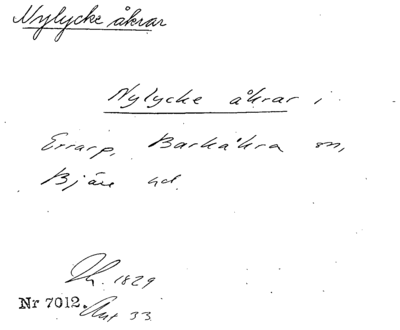 Nylycke åkrar
Nylycke åkrar i
Errarp, Barkåkra sn,
Bjäre hd.
1829
Nr 7012. 33